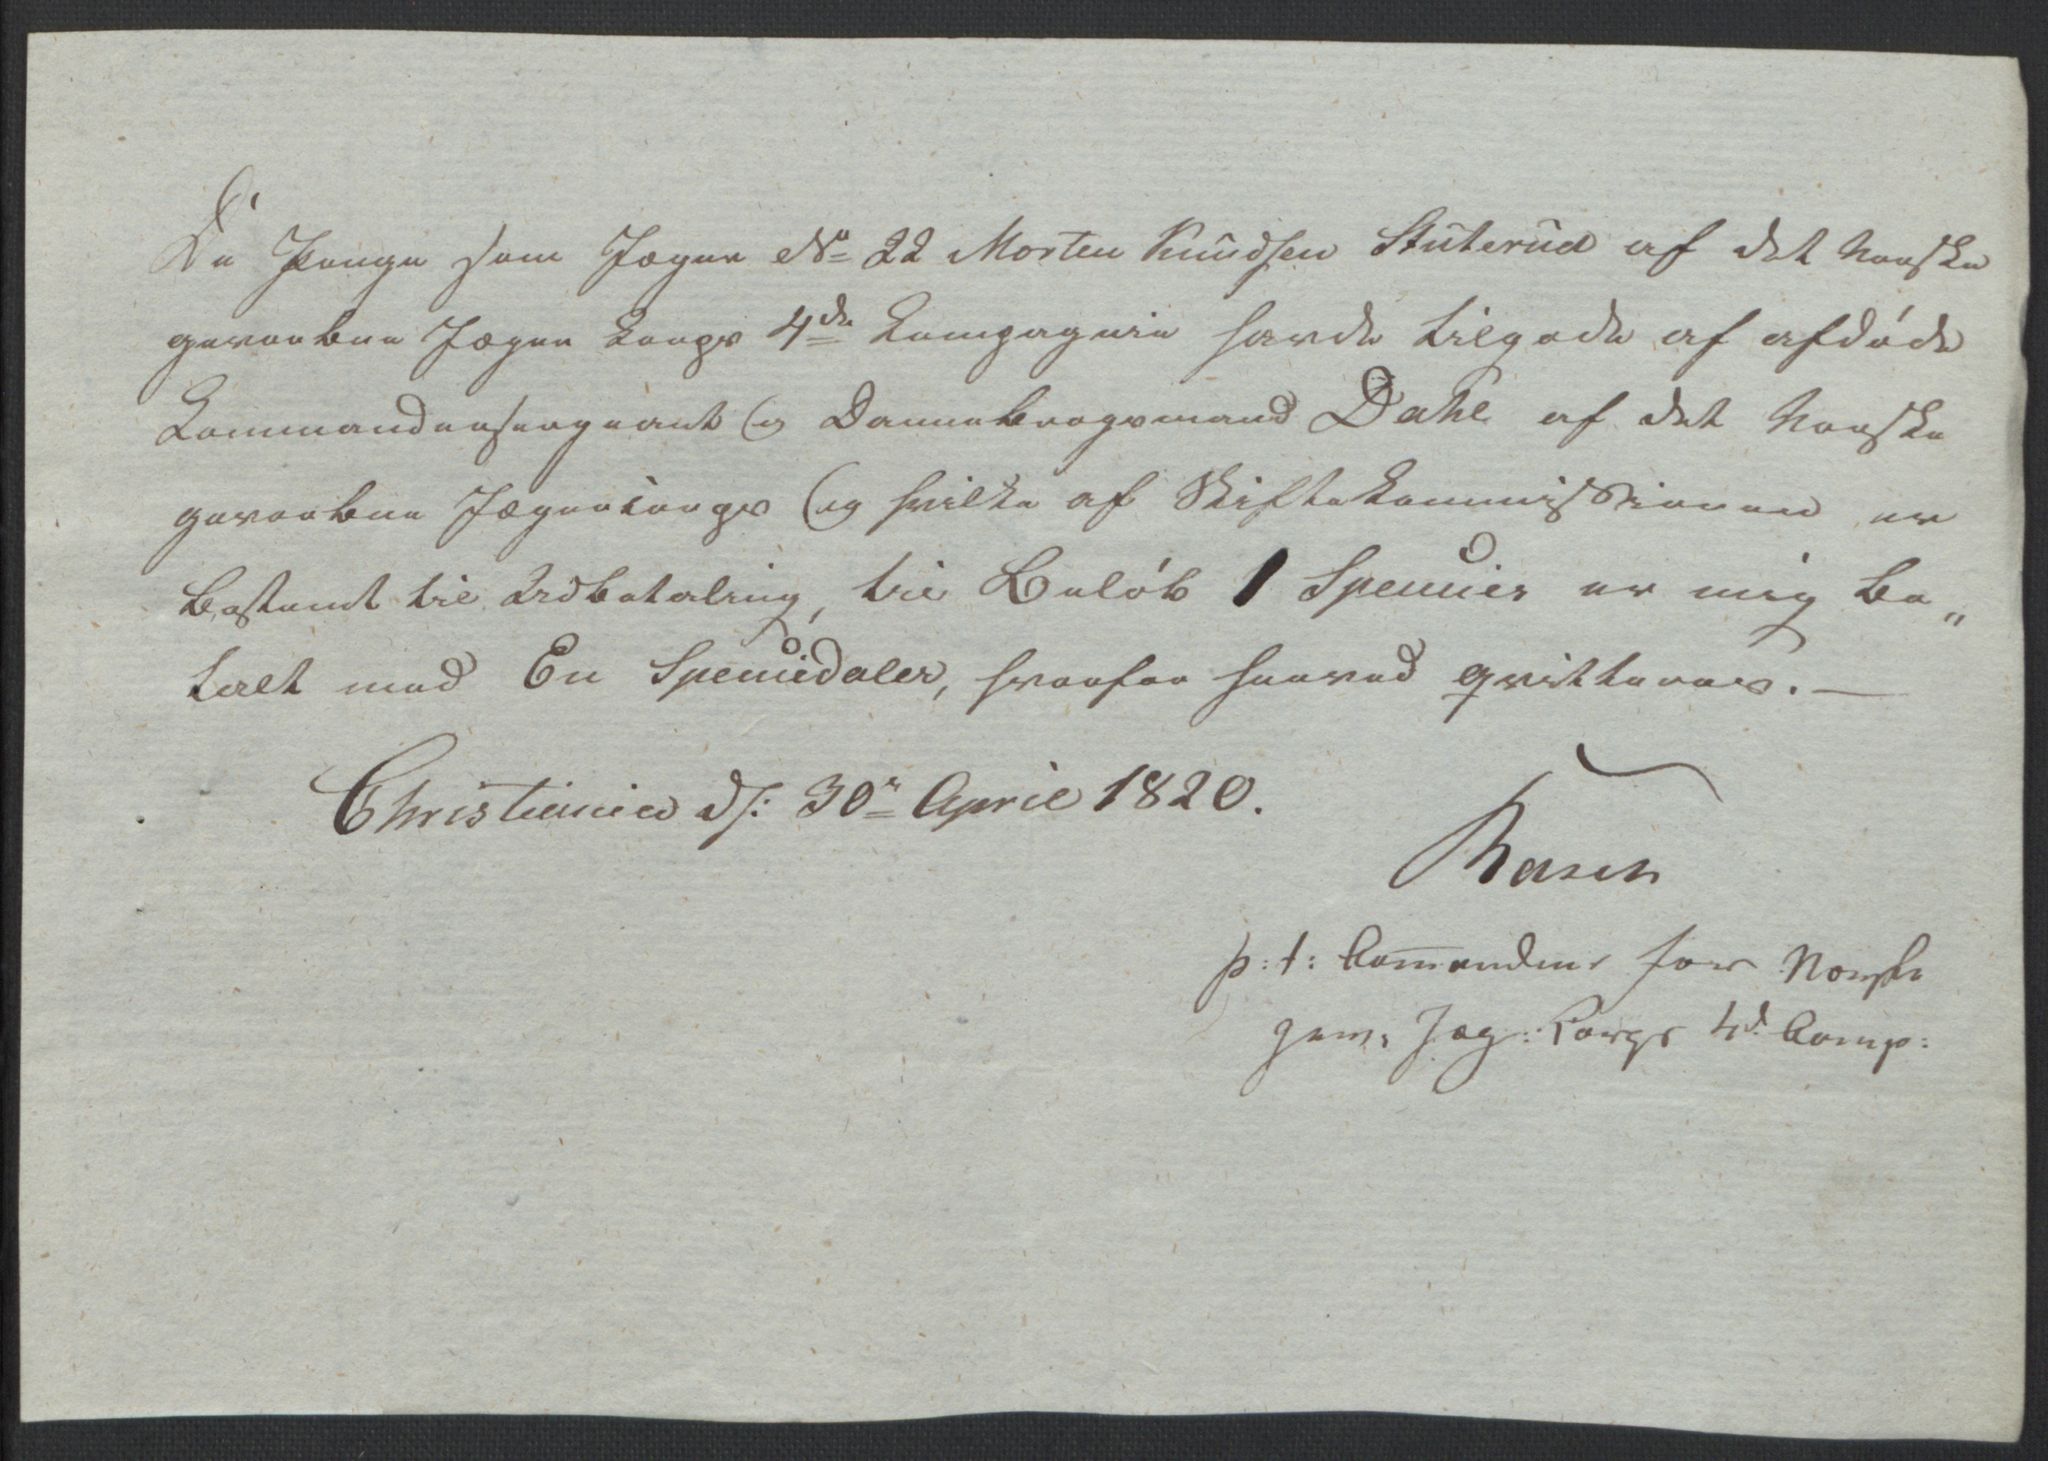 De Penge som Jæger No 22 Morten Knudsen Stuterud af det Norske
gevorbne Jæger Corps 4de Compagnie havde tilgode af afdøde
Commandeersergeant og Dannebrogsmand Dahl af det Norske
gevorbne Jægercorps og hvilke af Skiftekommissionen er
bestemt til Udbetaling, til Beløb 1 Specier er mig be„
talt med En Speciedaler, hvorfor herved qvitteres. —
Christiania d: 30te April 1820.
p: t: Commandeur for Norske
gew: Jæg: Corps 4d: Comp: